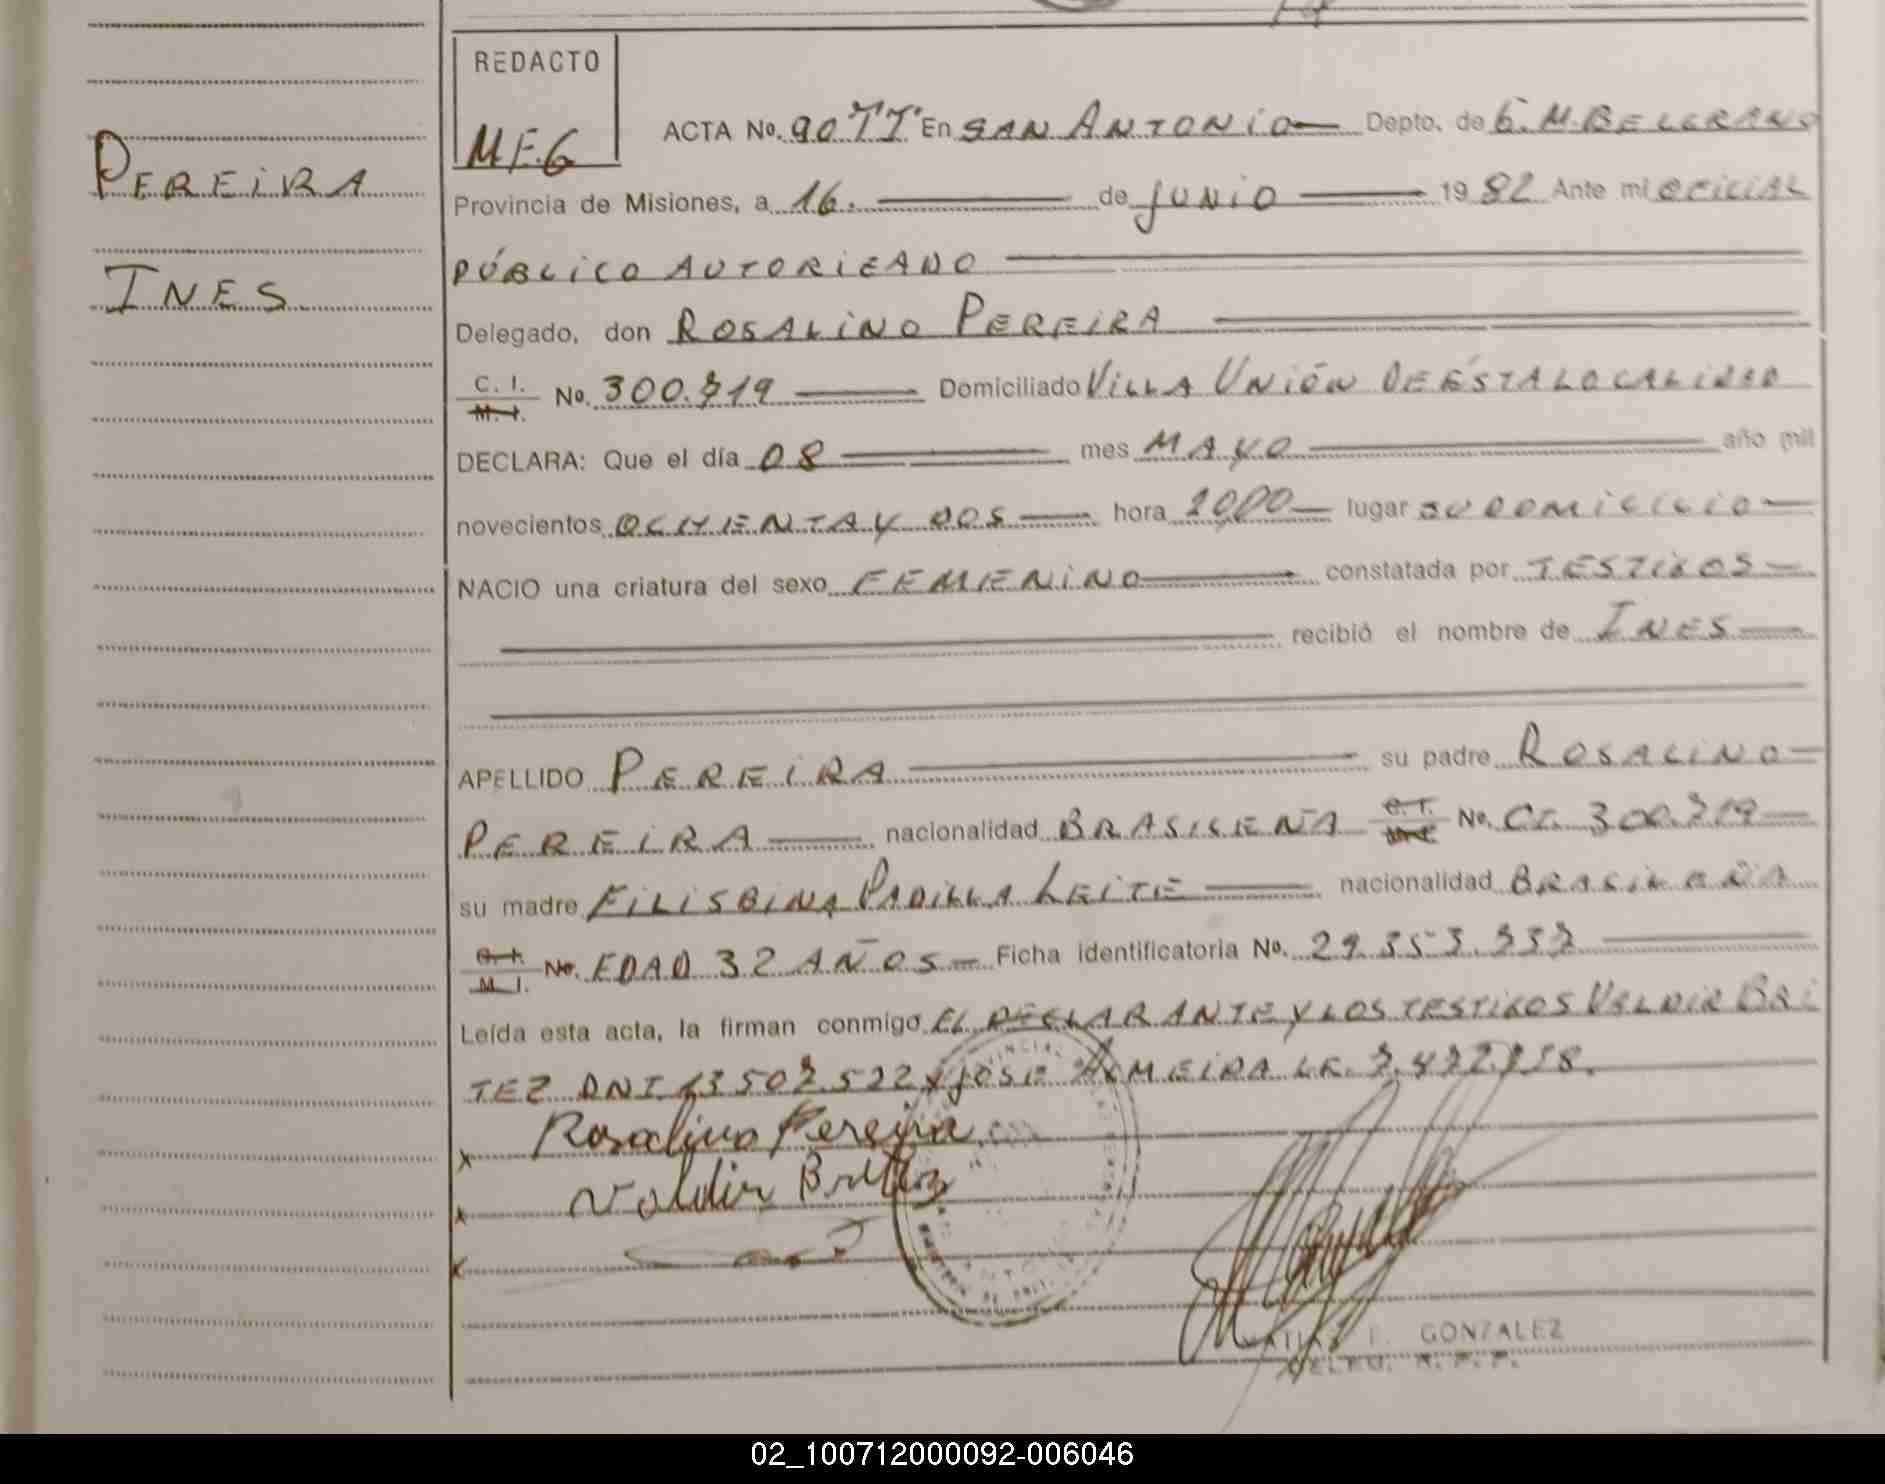 REDACTO
M.F.G
PEREIRA
INES
ACTA No. 90 TT En SAN ANTONIO Depto. de G. M. BELGRANO
Provincia de Misiones, a 16. de JUNIO 1982 Ante mi OFICIAL
PÚBLICO AUTORIZADO
Delegado, don ROSALINO PEREIRA
C. I. M. I. No. 300.719 Domiciliado VILLA UNIÓN DE ÉSTA LOCALIDAD
DECLARA: Que el día 08 mes MAYO año mil
novecientos OCHENTA Y DOS hora lugar SU DOMICILIO
NACIO una criatura del sexo FEMENINO constatada por TESTIGOS
recibió el nombre de INES
APELLIDO PEREIRA su padre ROSALINO
PEREIRA nacionalidad BRASILEÑA C. I. M. I. No. CI. 300.719
su madre FILISBINA PADILLA LEITE nacionalidad BRASILEÑA
C. I. M. I. No. EDAD 32 AÑOS Ficha identificatoria No.
Leída esta acta, la firman conmigo EL DECLARANTE Y LOS TESTIGOS VALDIR BRI
TEZ DNI 13.507.522 Y JOSE ALMEIDA LE.
Rosalino Pereira
Valdir Brittez
MATIAS F. GONZALEZ
02_100712000092-006046